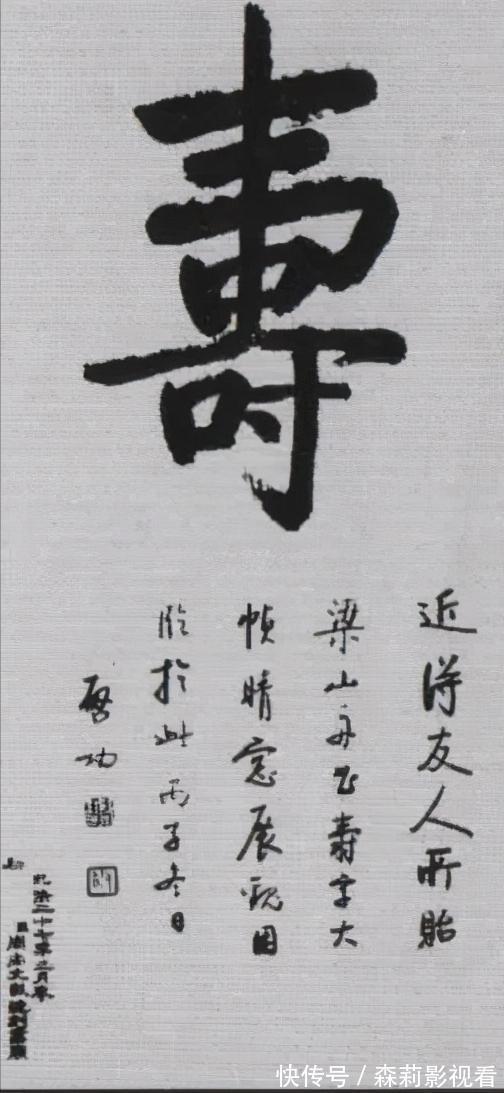 壽
近得友人所貽
梁山舟书壽字大
幀晴窓展觀因
臨於此丙子冬日
啓功
快传号 / 森莉影视看